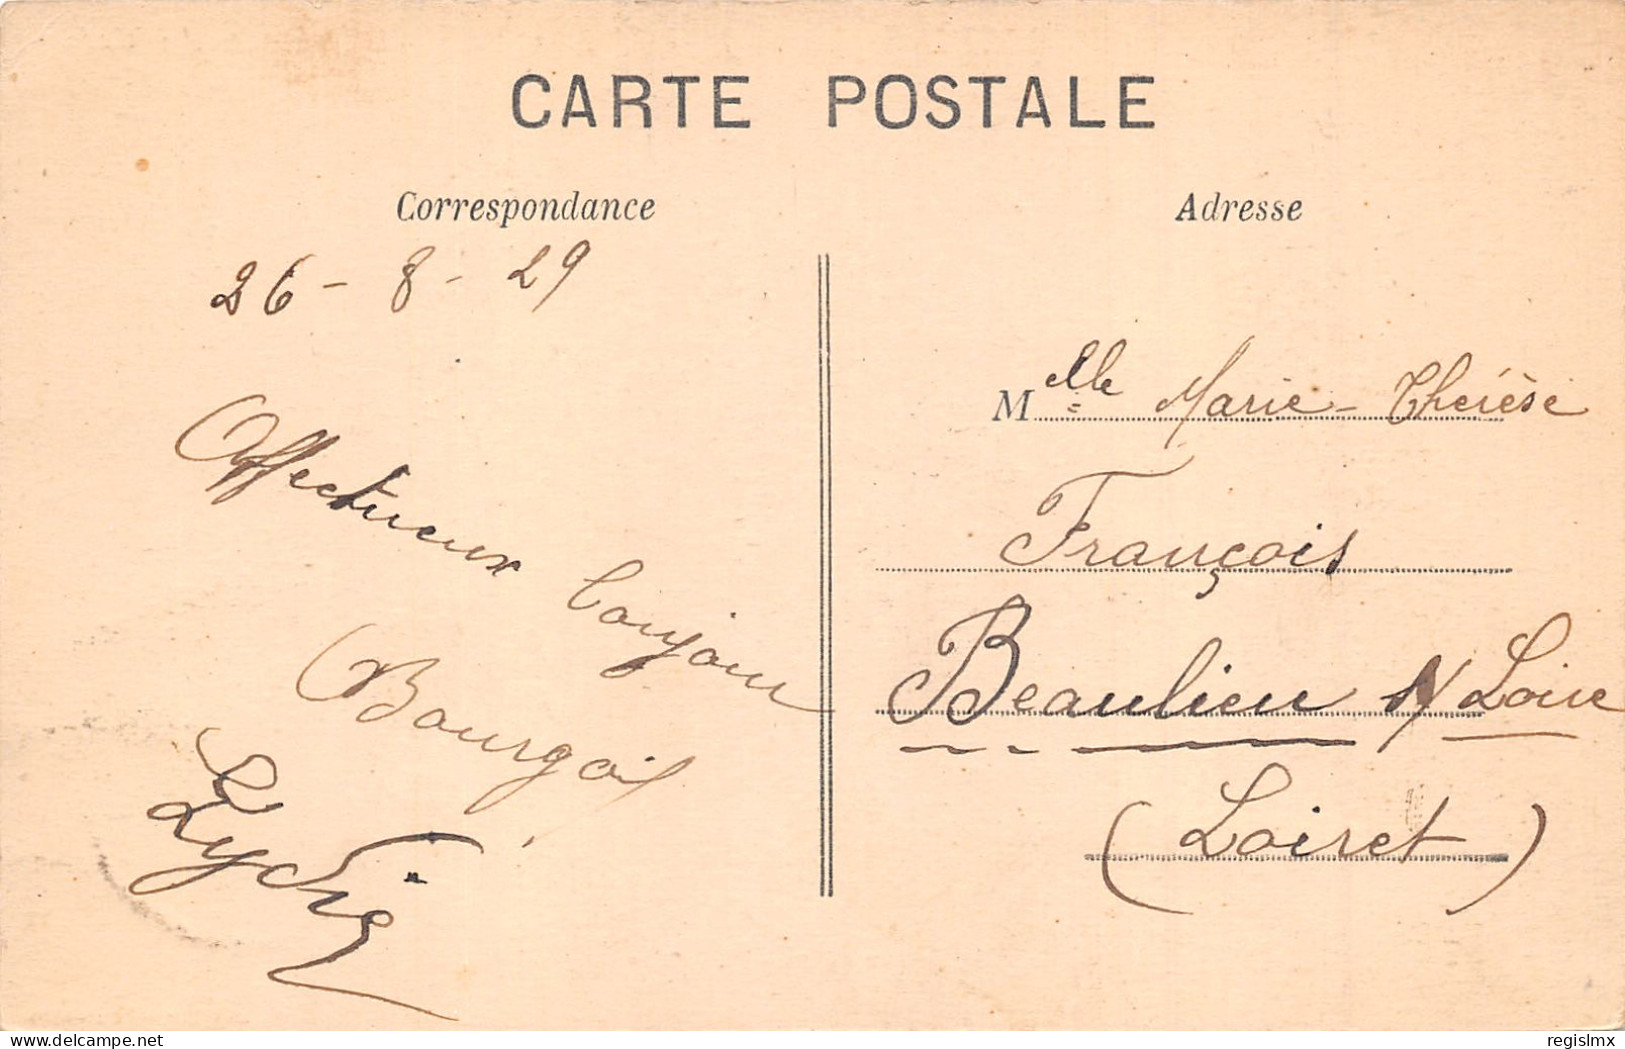 CARTE POSTALE
Correspondance
26 - 8 - 29
Affectueux bonjour
Bourgoil
Lydie
Adresse
Melle Marie-Thérèse
François
Beaulieu s/ Loire
(Loiret)
delcampe.net
regislmx